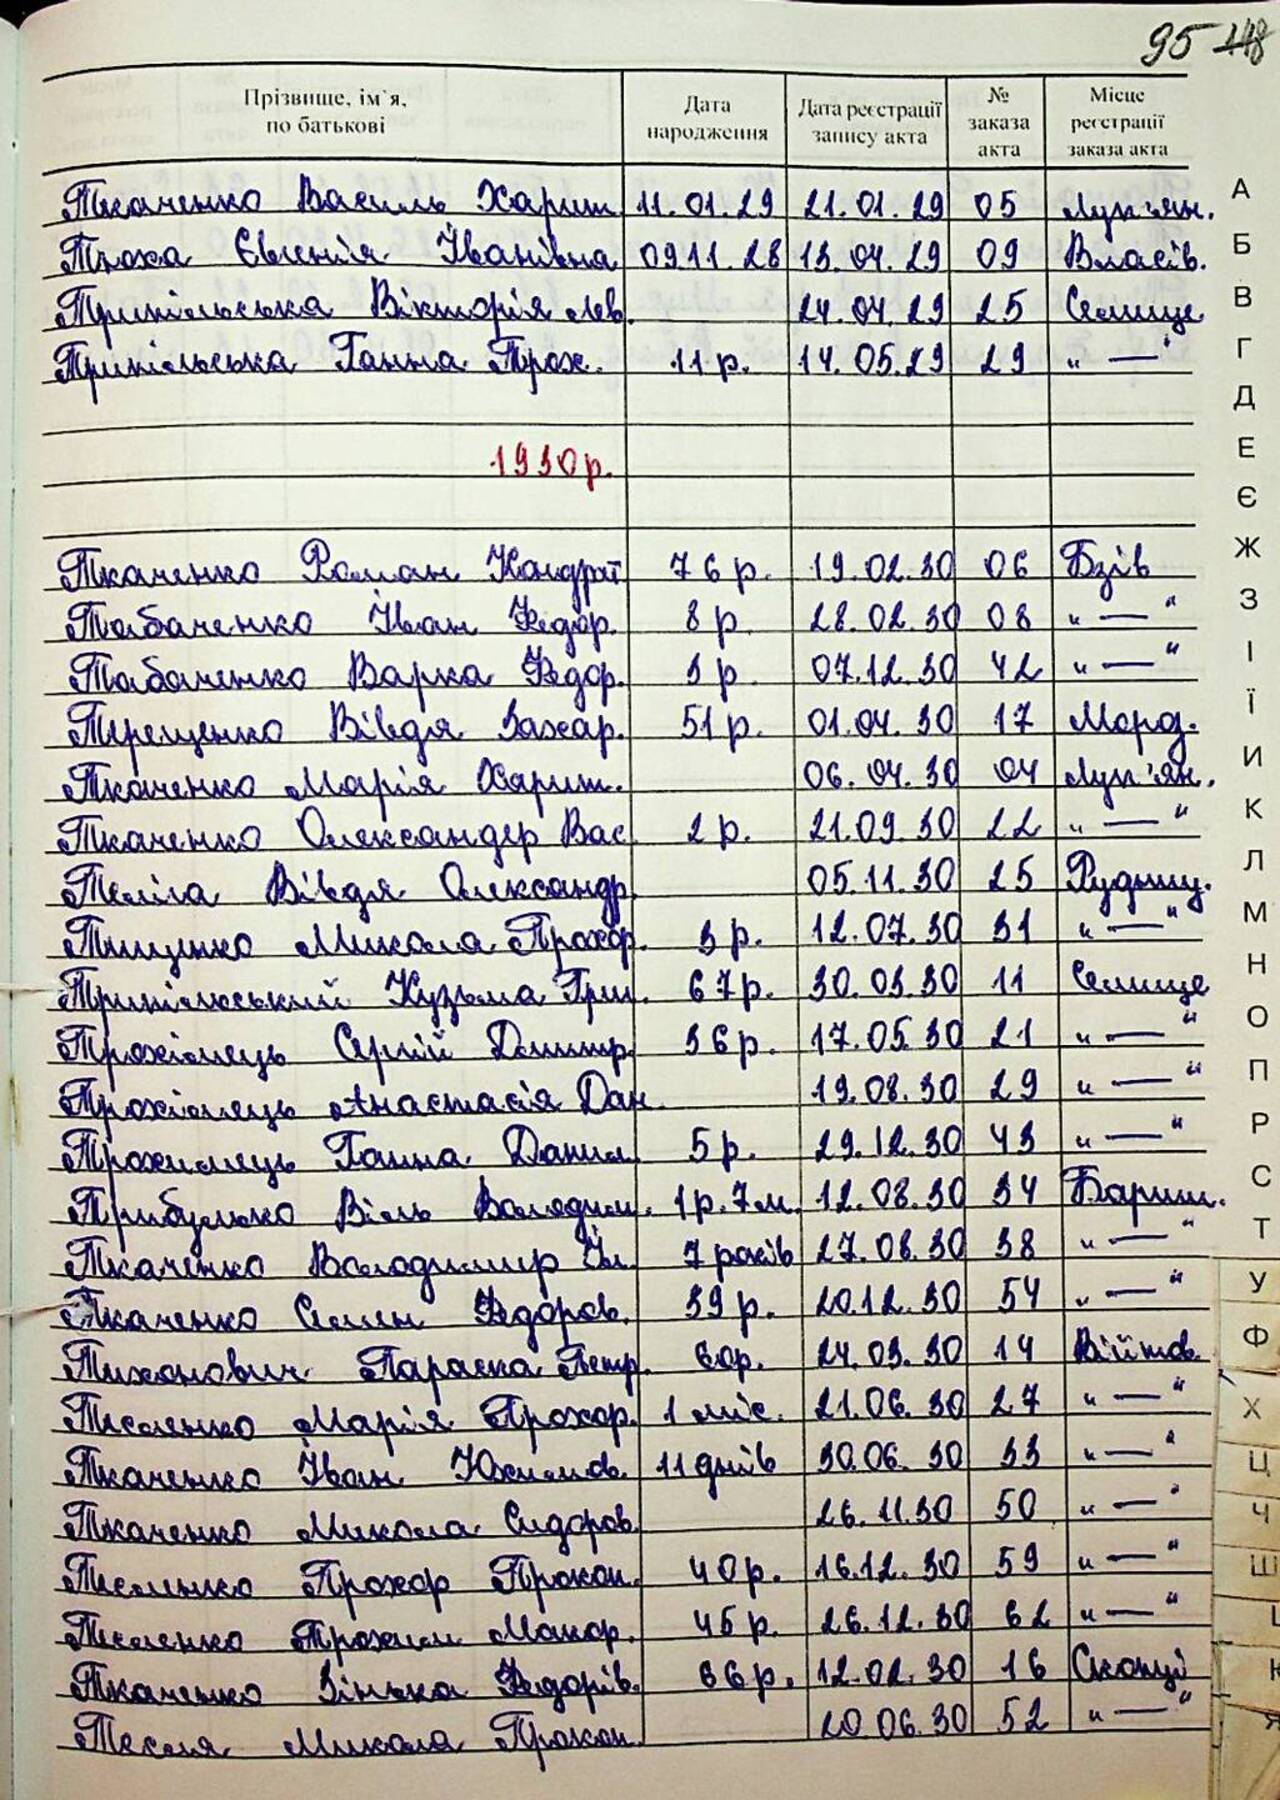 95 148
Прізвище, ім`я, по батькові Дата народження Дата реєстрації запису акта № заказа акта Місце реєстрації заказа акта
Ткаченко Василь Харит. 11.01.29 21.01.29 05 Лук'ян.
Троха Євгенія Іванівна 09.11.28 13.04.29 09 Власів.
Трипільська Вікторія Лев. 24.04.29 25 Селище
Трипільська Ганна Трох. 11 р. 14.05.29 29 „ — “
1930 р.
Ткаченко Роман Кондрат 76 р. 19.02.30 06 Бзів
Табаченко Іван Федор. 8 р. 28.02.30 08 „ — “
Табаченко Варка Федор. 3 р. 07.12.30 42 „ — “
Терещенко Вівдя Захар. 51 р. 01.04.30 17 Морд.
Ткаченко Марія Харит. 06.04.30 04 Лук'ян.
Ткаченко Олександер Вас. 2 р. 21.09.30 22 „ — “
Теліга Вівдя Олександр. 05.11.30 25 Рудниц.
Тищенко Микола Прохор. 3 р. 12.07.30 31 „ — “
Трипільський Кузьма Гри. 67 р. 30.03.30 11 Селище
Трохимець Сергій Дмитр. 36 р. 17.05.30 21 „ — “
Трохимець Анастасія Дан. 19.08.30 29 „ — “
Трохимець Ганна Данил. 5 р. 29.12.30 43 „ — “
Трибулько Віль Володим. 1 р. 7 м. 12.08.30 34 Бариш.
Ткаченко Володимир Іл. 7 років 27.08.30 38 „ — “
Ткаченко Семен Федоров. 39 р. 20.12.30 54 „ — “
Тихонович Параска Петр. 60 р. 24.03.30 14 Війтов.
Тесленко Марія Прохор. 1 міс. 21.06.30 27 „ — “
Ткаченко Іван Юхимов. 11 днів 30.06.30 33 „ — “
Ткаченко Микола Сидоров. 26.11.30 50 „ — “
Тесленко Прохор Прокоп. 40 р. 16.12.30 59 „ — “
Тесленко Трохим Макар. 45 р. 26.12.30 62 „ — “
Ткаченко Зінька Федорів. 66 р. 12.02.30 16 Скопці
Тесля Микола Прокоп. 20.06.30 52 „ — “
А
Б
В
Г
Д
Е
Є
Ж
З
І
Ї
И
К
Л
М
Н
О
П
Р
С
Т
У
Ф
Х
Ц
Ч
Ш
Я